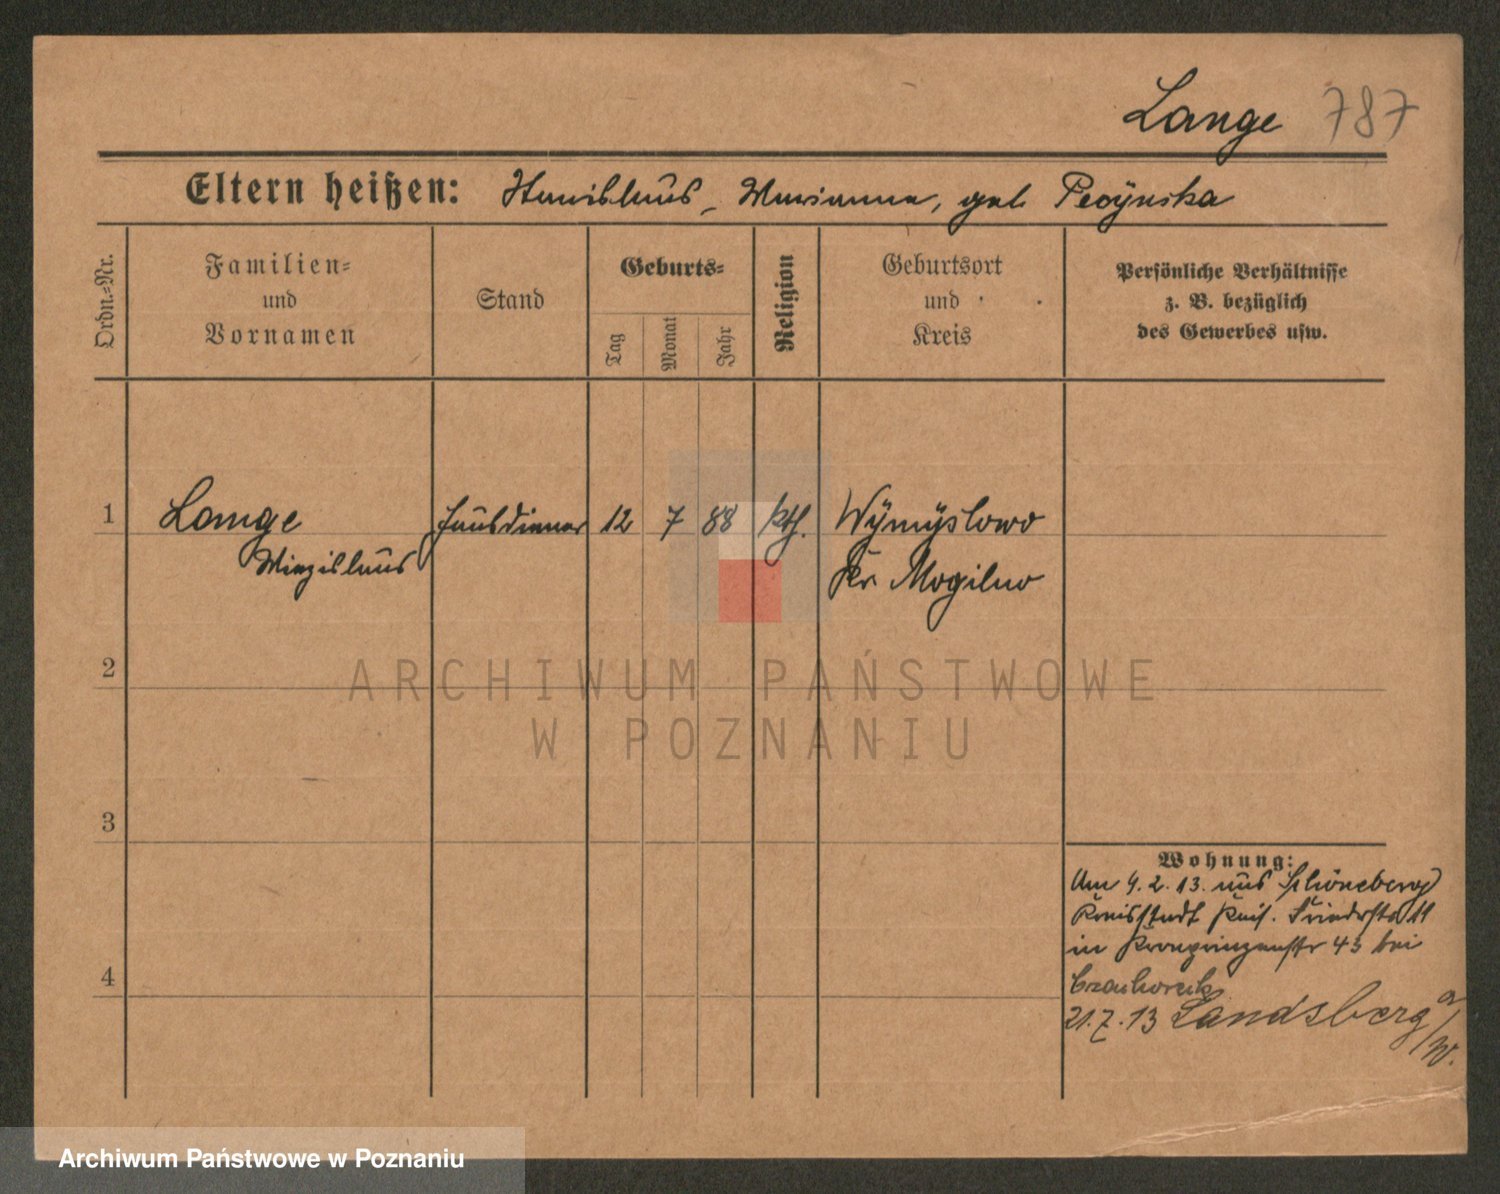 Lange 787
Eltern heißen: Stanislaus, Marianna, geb
Ordn.=Nr.
Familien=
und
Vornamen
Stand
Geburts=
Tag
Monat
Jahr
Religion
Geburtsort
und
Kreis
Persönliche Verhältnisse
z. B. bezüglich
des Gewerbes usw.
1 Lange Hausdiener 12 7 88 kth. Wymyslowo
Kr. Mogilno
2
ARCHIWUM PAŃSTWOWE
W POZNANIU
3
Wohnung:
Am 4.2.13. aus Schöneberg
in Kronprinzenstr 43 bei
4
21.7.13 Landsberg a/W.
Archiwum Państwowe w Poznaniu